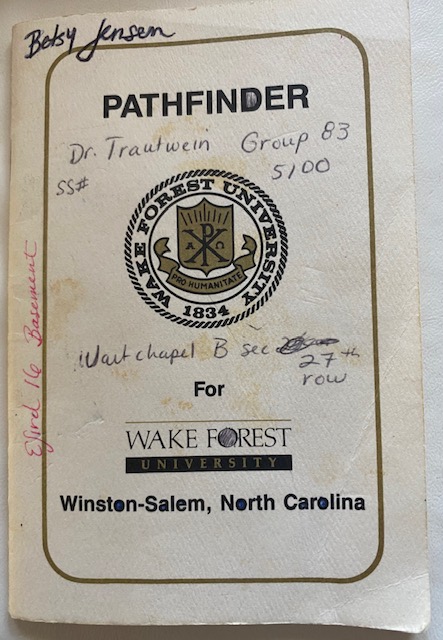 Betsy Jensen
PATHFINDER
Dr. Trautwein Group 83
SS# 5100
WAKE FOREST UNIVERSITY
PRO HUMANITATE
1834
Wait chapel B sec 27th
row
Efird 16 Basement
For
WAKE FOREST
UNIVERSITY
Winston-Salem, North Carolina